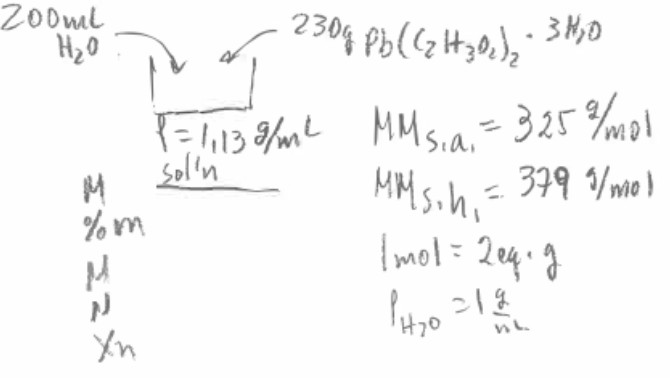 200mL
H₂O
230g Pb(C₂H₃O₂)₂ · 3H₂O
ρ = 1,13 g/mL
sol'n
M
%m
M
N
Xn
MM s.a. = 325 g/mol
MM s.h. = 379 g/mol
1mol = 2eq·g
ρ H₂O = 1 g/mL